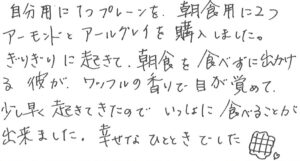 自分用に1つプレーンを、朝食用に2つ
アーモンドとアールグレイを購入しました。
ぎりぎりに起きて、朝食を食べずに出かけ
る彼が、ワッフルの香りで目が覚めて、
少し早く起きてきたので いっしょに食べることが
出来ました。幸せなひとときでした